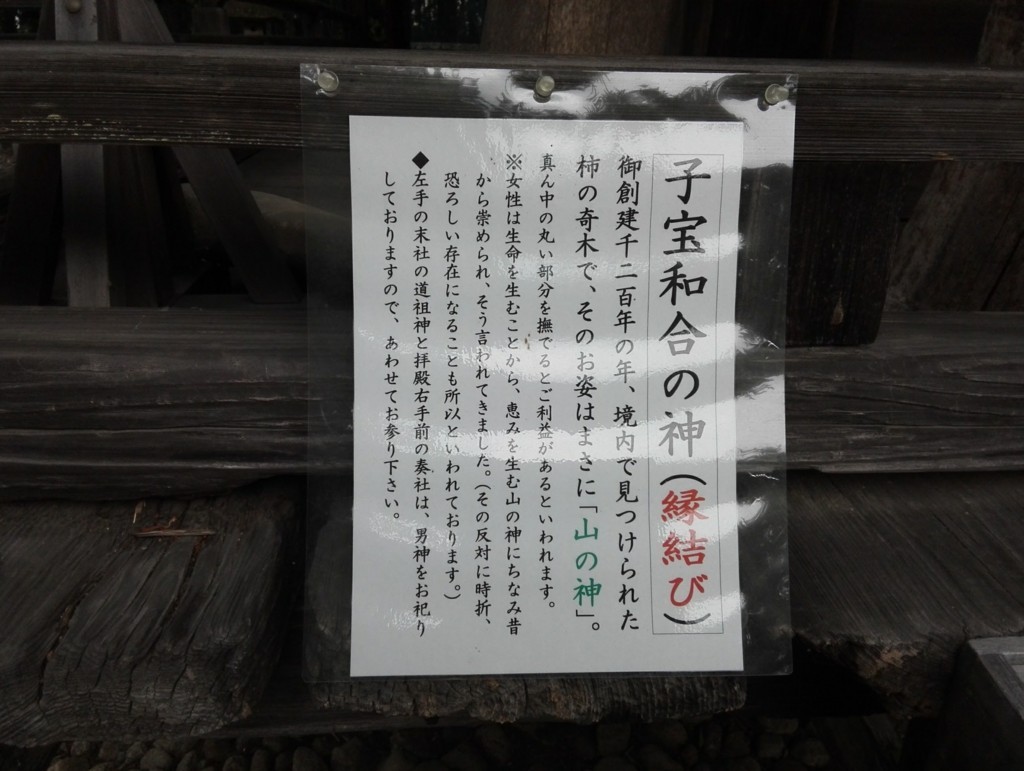 子宝和合の神（縁結び）
御創建千二百年の年、境内で見つけられた
柿の奇木で、そのお姿はまさに「山の神」。
真ん中の丸い部分を撫でるとご利益があるといわれます。
※女性は生命を生むことから、恵みを生む山の神にちなみ昔
から崇められ、そう言われてきました。（その反対に時折、
恐ろしい存在になることも所以といわれております。）
◆左手の末社の道祖神と拝殿右手前の奏社は、男神をお祀り
しておりますので、あわせてお参り下さい。